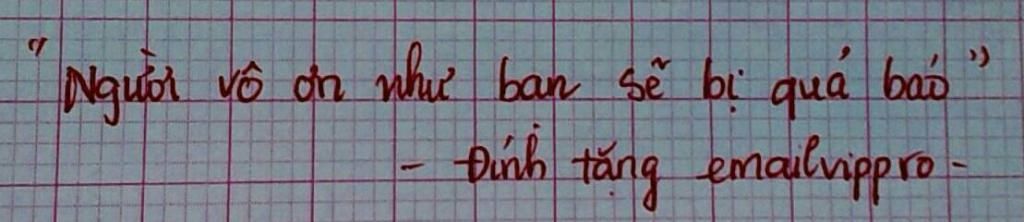 "Người vô ơn như bạn sẽ bị quả báo"
- Đính tặng emailvippro -